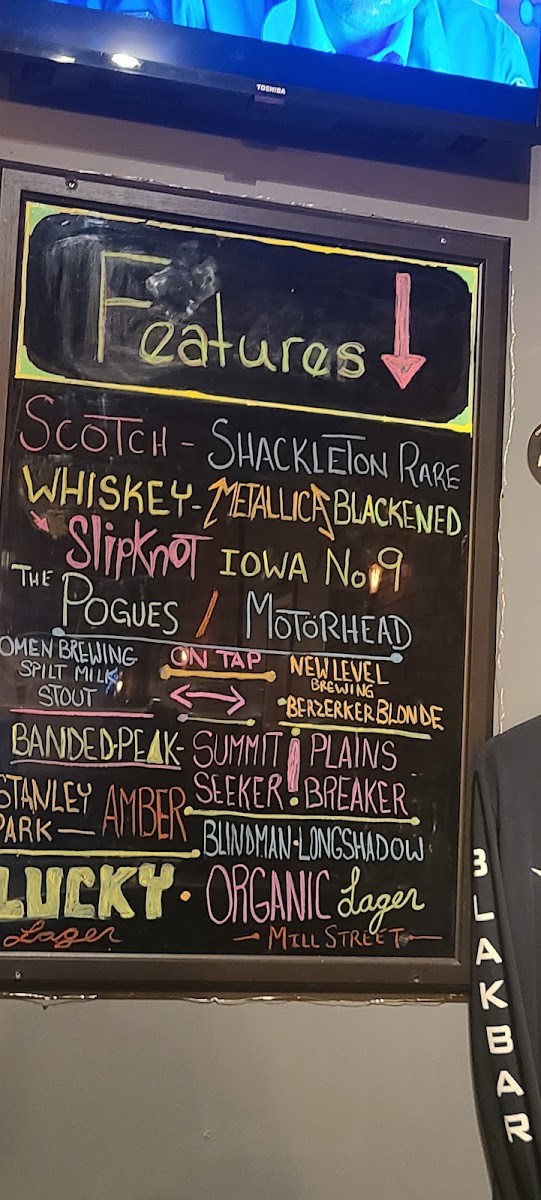 TOSHIBA
Features
SCOTCH - SHACKLETON RARE
WHISKEY - METALLICA BLACKENED
SlipKnoT IOWA No 9
THE POGUES / MOTÖRHEAD
OMEN BREWING
SPILT MILK
STOUT
ON TAP
NEW LEVEL
BREWING
BERZERKER BLONDE
BANDED PEAK - SUMMIT SEEKER
PLAINS BREAKER
STANLEY PARK — AMBER
BLINDMAN · LONGSHADOW
LUCKY Lager
ORGANIC Lager
MILL STREET
BLAKBAR